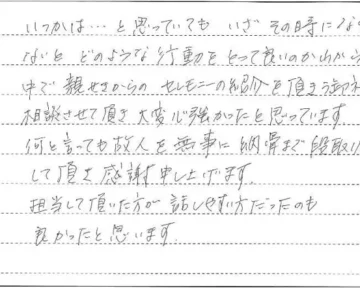 いつかは…と思っていても いざ その時になる
ないと どのような行動をとって良いのかわから
中で 親せきからの セレモニーの紹介を頂き御
相談させて頂き 大変心強かったと思っています
何と言っても故人を無事に納骨まで段取り
して頂き感謝申し上げます
担当して頂いた方が 話しやすい方だったのも
良かったと思います.